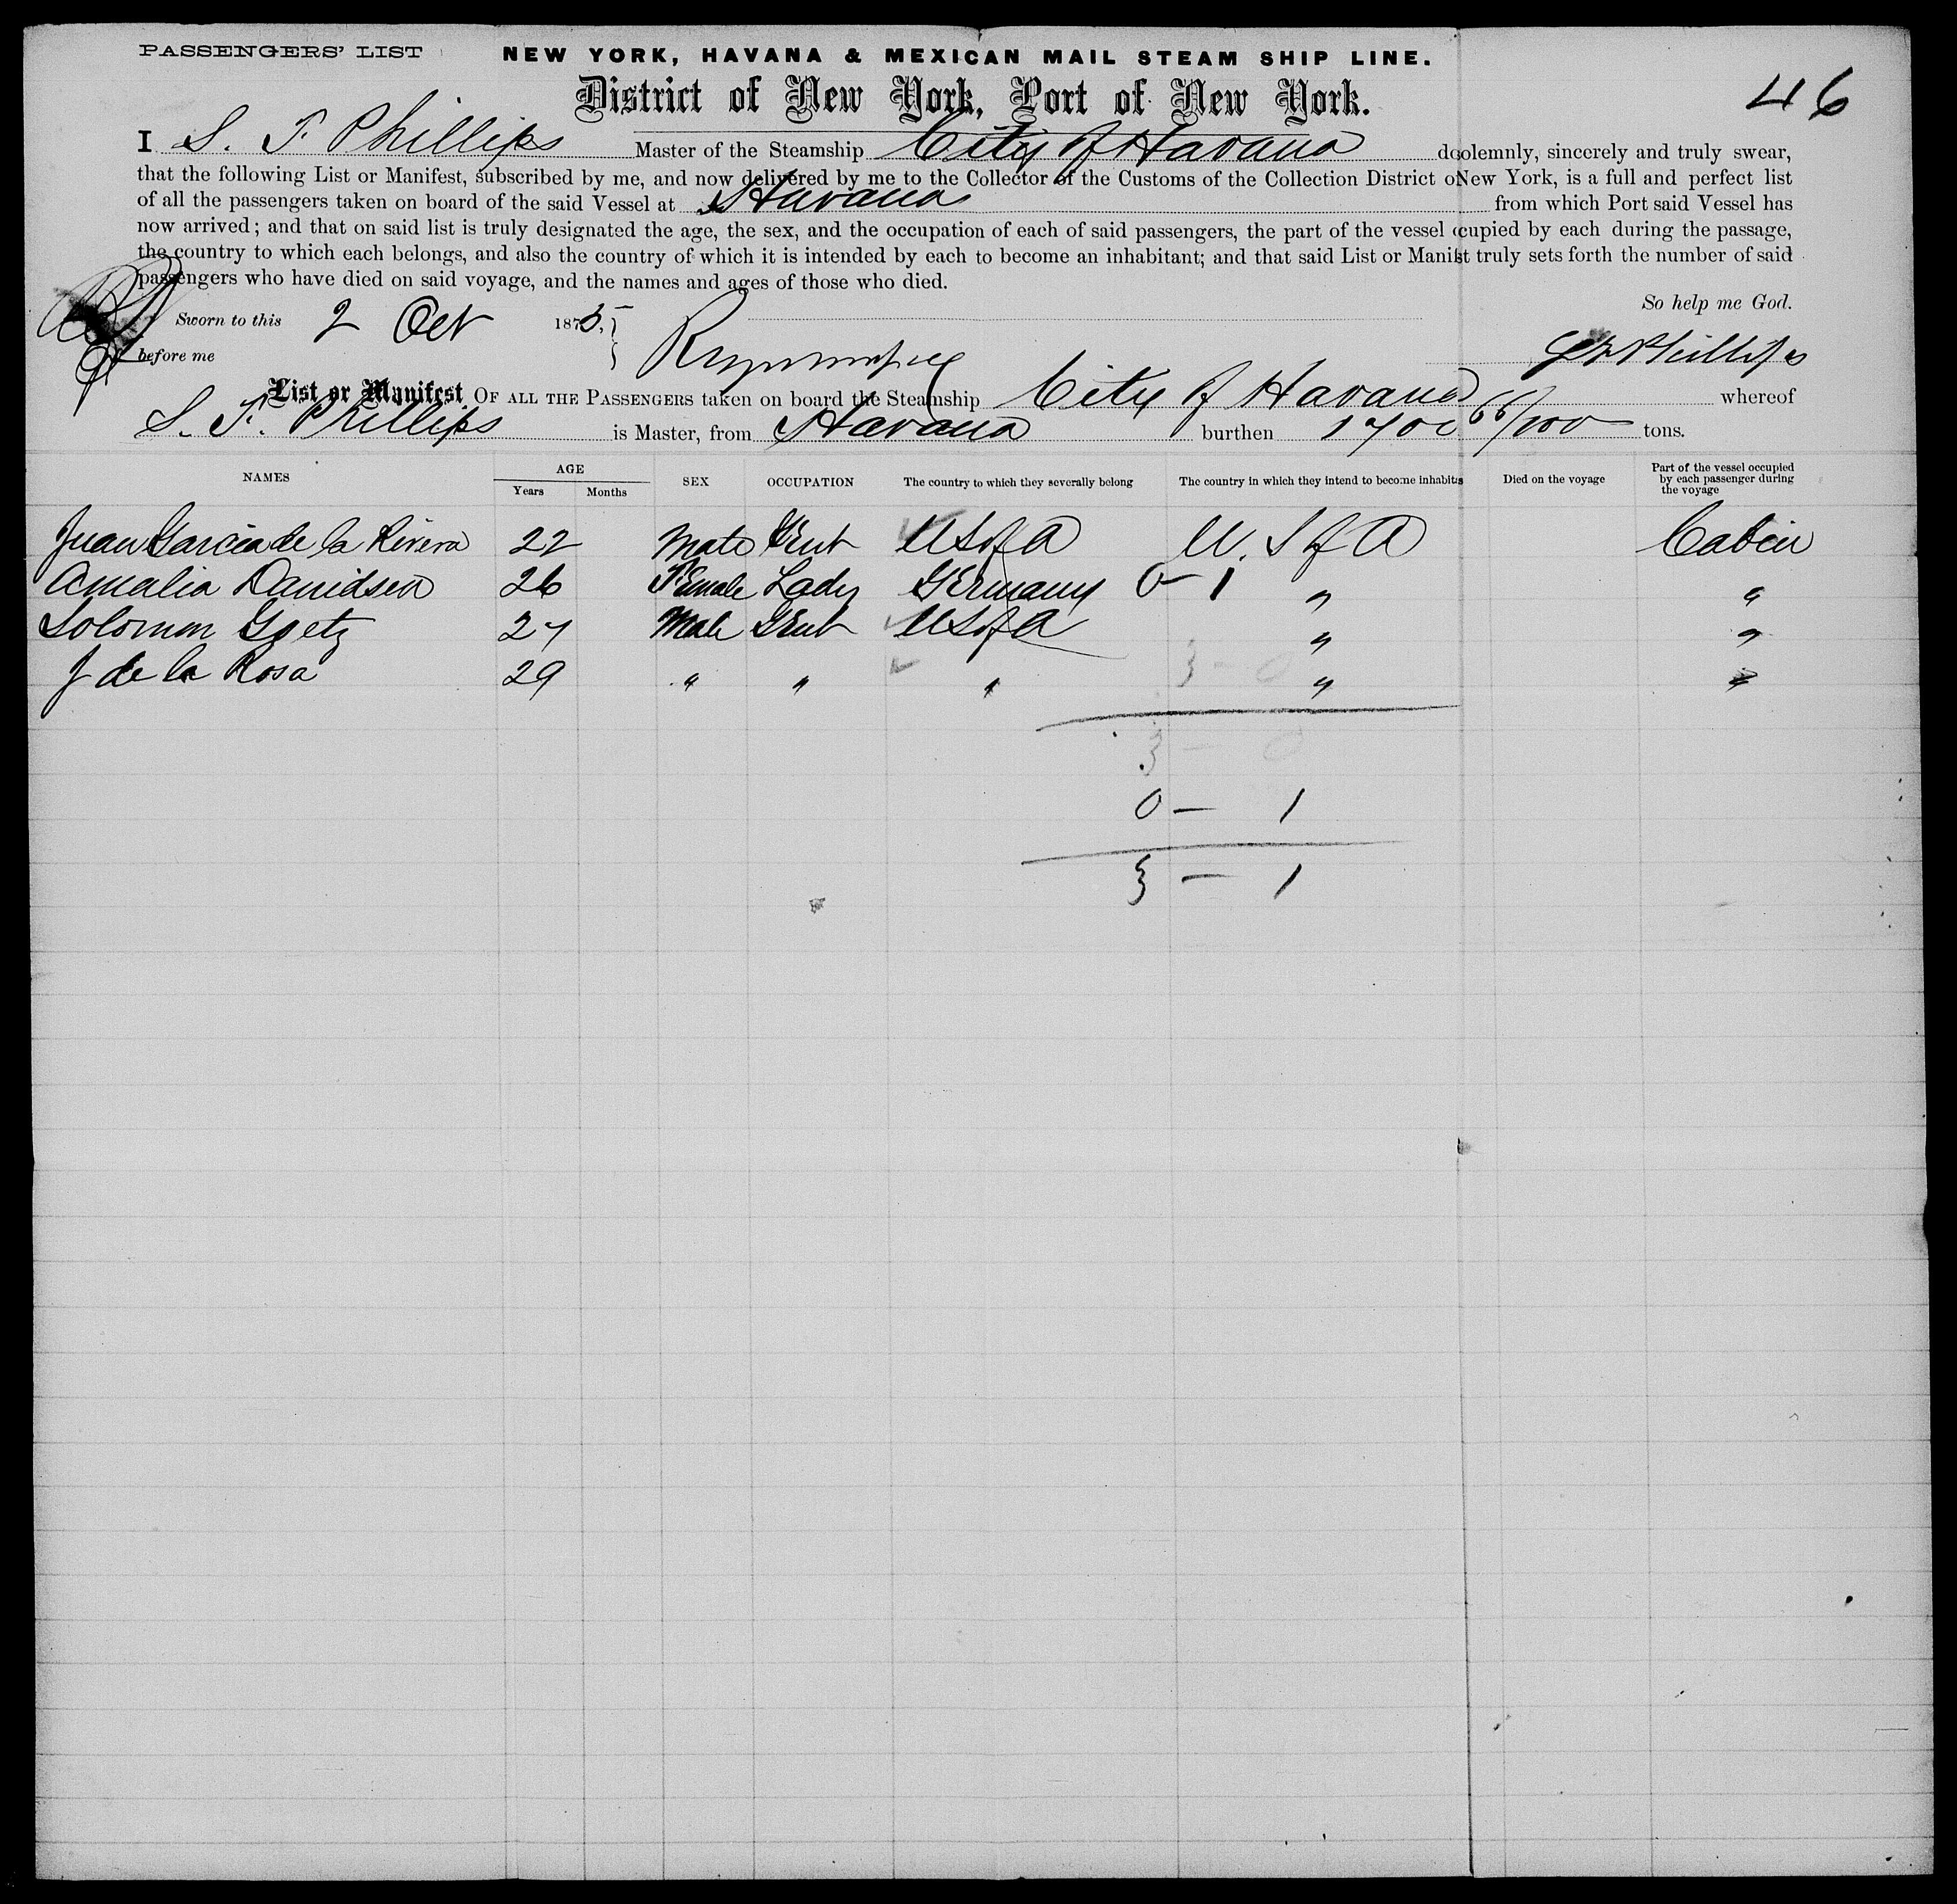 PASSENGERS' LIST NEW YORK, HAVANA & MEXICAN MAIL STEAM SHIP LINE.
District of New York, Port of New York. 46
I S. F. Phillips Master of the Steamship City of Havana do olemnly, sincerely and truly swear,
that the following List or Manifest, subscribed by me, and now delivered by me to the Collector of the Customs of the Collection District o New York, is a full and perfect list
of all the passengers taken on board of the said Vessel at Havana from which Port said Vessel has
now arrived; and that on said list is truly designated the age, the sex, and the occupation of each of said passengers, the part of the vessel cupied by each during the passage,
the country to which each belongs, and also the country of which it is intended by each to become an inhabitant; and that said List or Manif st truly sets forth the number of said
passengers who have died on said voyage, and the names and ages of those who died.
So help me God.
Sworn to this 2 Oct 1875,
before me S F Phillips
List or Manifest OF ALL THE PASSENGERS taken on board the Steamship City of Havana whereof
S. F. Phillips is Master, from Havana burthen 1700 66/100 tons.
NAMES AGE Years Months SEX OCCUPATION The country to which they severally belong The country in which they intend to become inhabit s Died on the voyage Part of the vessel occupied by each passenger during the voyage
Juan Garcia de la Rivera 22 Male Gent U S of A U. S of A Cabin
Amalia Davidson 26 Female Lady Germany 0 - 1 " "
Solomon Goetz 27 Male Gent U S of A " "
J de la Rosa 29 " " " 3 - 0 " "
3 - 0
0 - 1
3 - 1